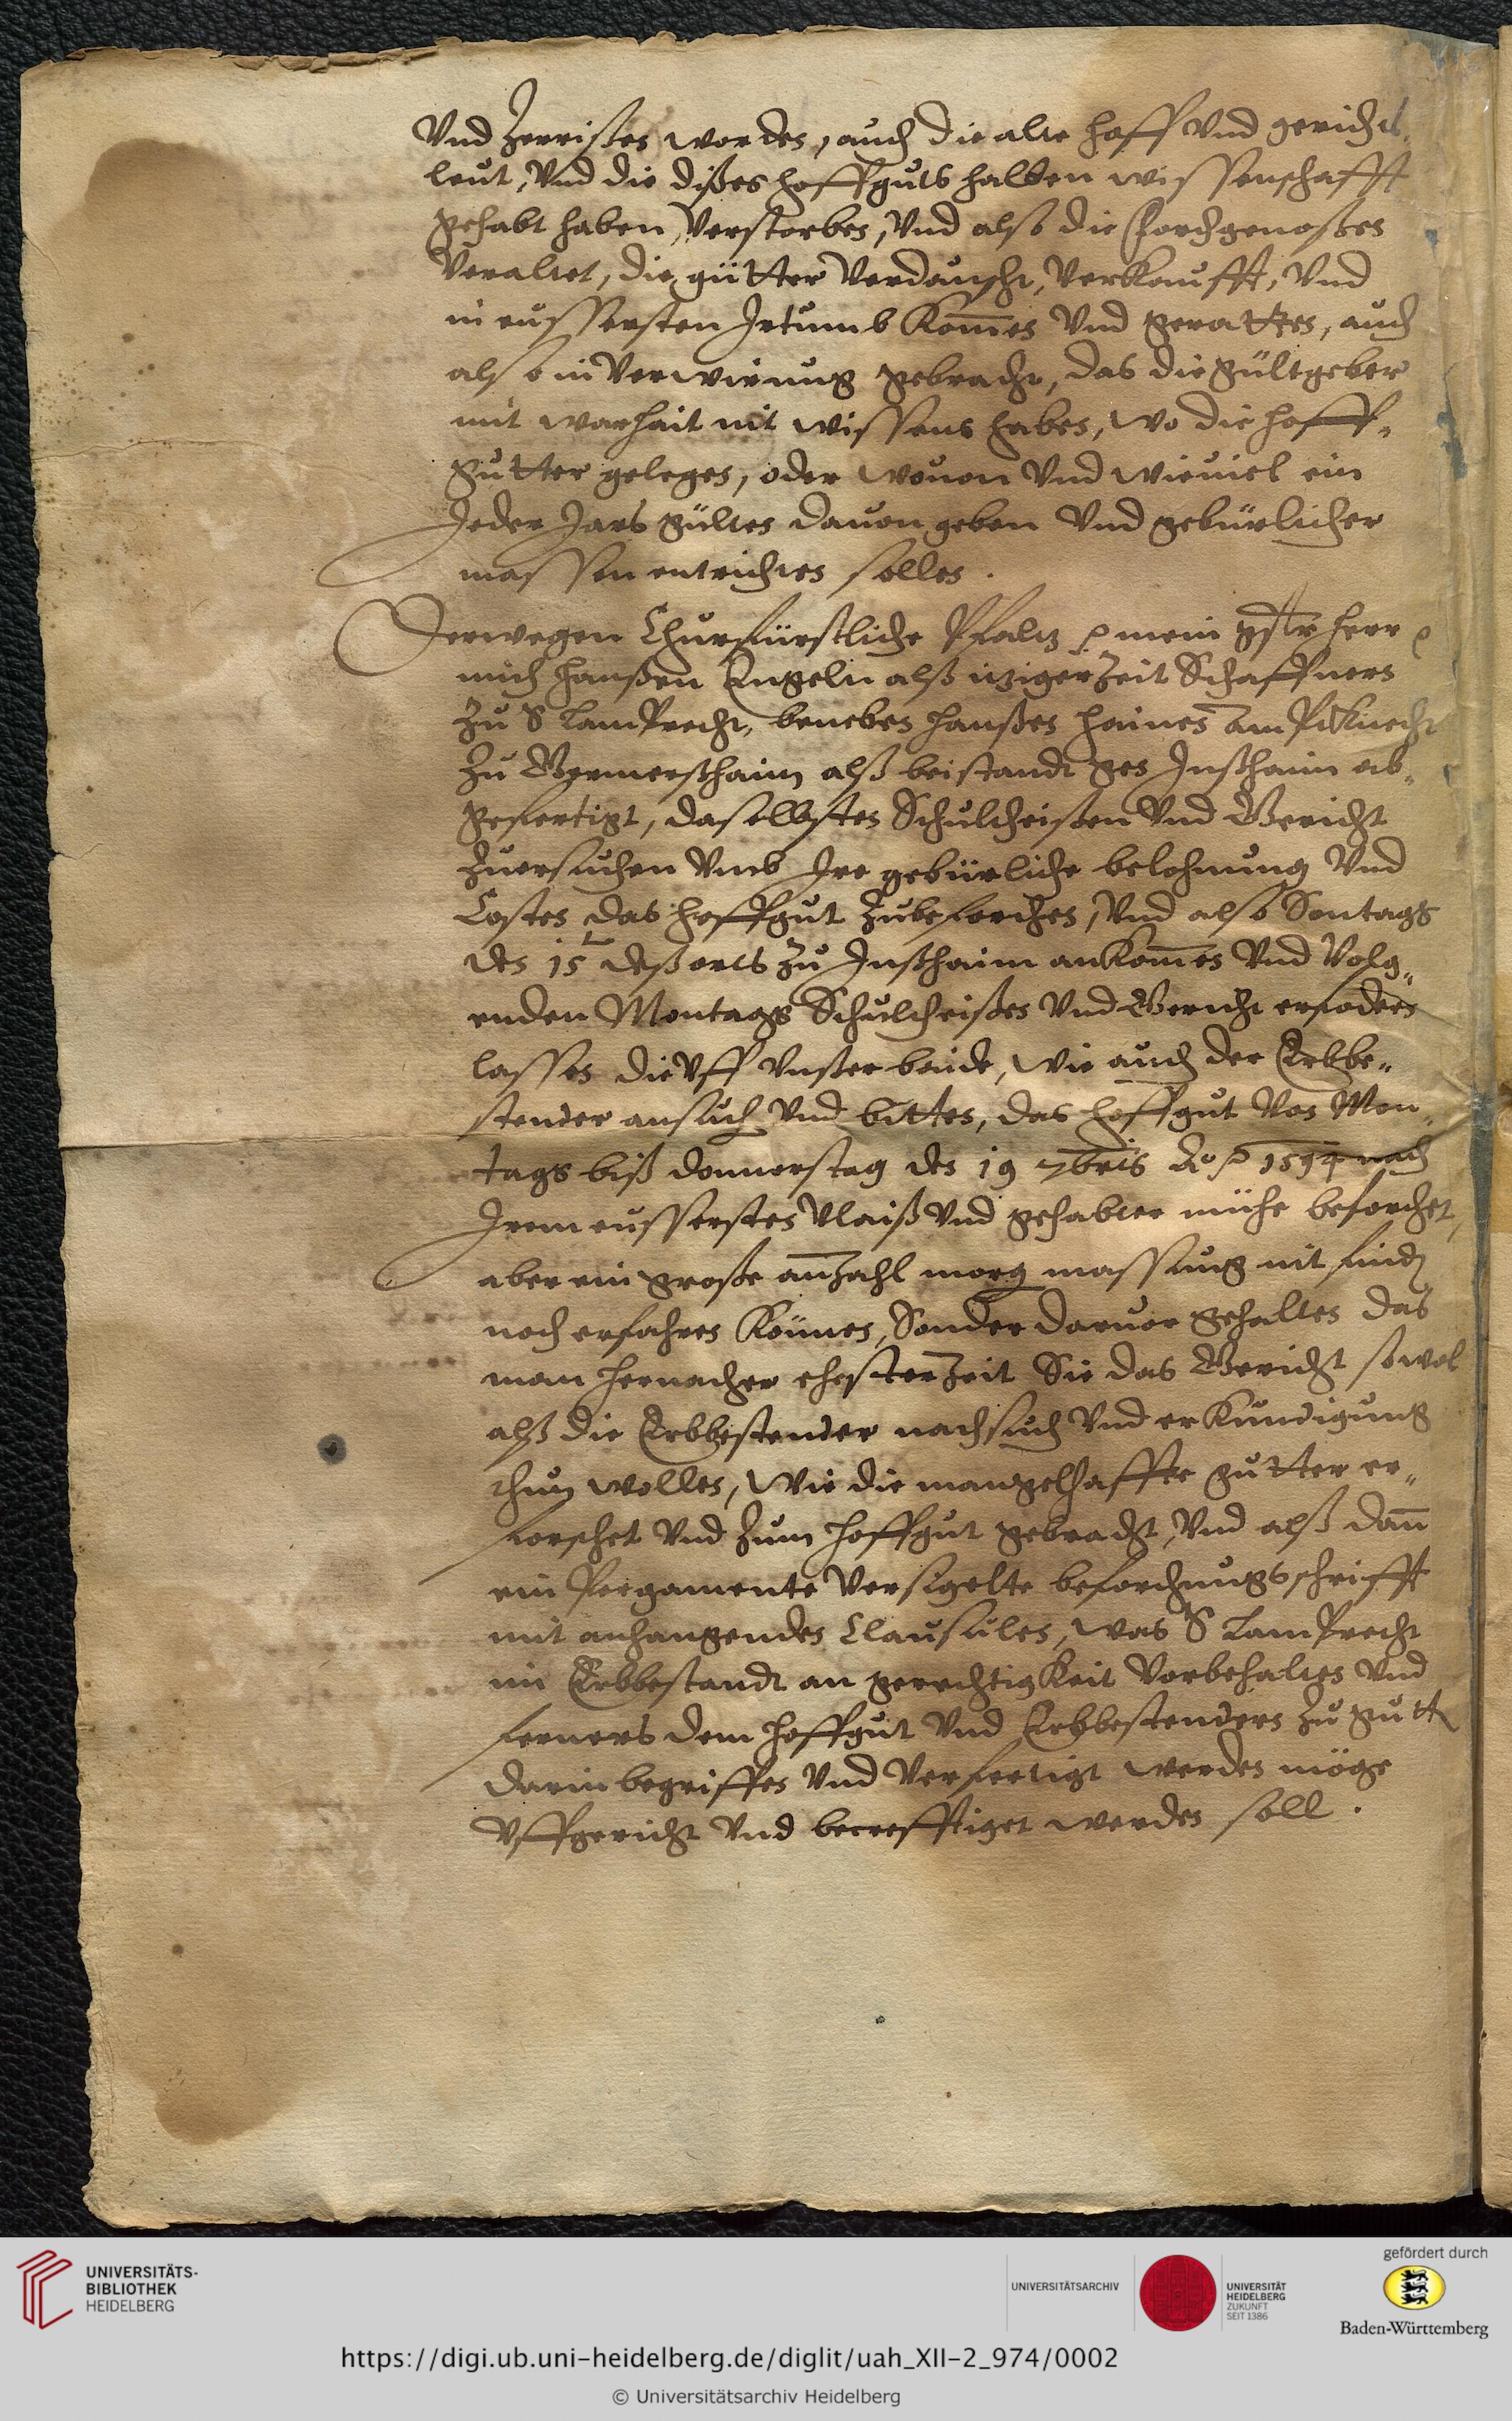 Vnd Zerrißen worden, auch die alte hoff Vnd gerichts„
leut, Vnd die dißes hoffguts halben wissenschafft
gehabt haben, Verstorben, Vnd also die forchgenoßen
Veraltet, die gütter Verdauscht, Verkaufft, Vnd
in eussersten Irtumb Kom̅en Vnd geratten, auch
also in Verwirung gebracht, das die gültgeber
mit warhait nit wissens haben, wo die hoff„
gutter gelegen, oder wouon Vnd wieuiel ein
Jeder Jars gülten dauon geben Vnd gebürlicher
massen entrichten sollen.
Derwegen Churfürstliche Pfaltz mein gster herr
mich hanßen Engeln alß itziger Zeit Schaffners
Zu S Lamprecht, beneben hanßen hainen
Zu Germerßhaim alß beistandt gen Inßhaim ab„
gefertigt, daselbsten Schultheißen Vnd Gericht
Zuersuchen Vmb Ire gebürliche belohnung Vnd
Costen das hoffgut Zubeforchen, Vnd also Sontags
den 15 deß orts Zu Inßhaim ankom̅en Vnd Volg„
enden Montags Schultheißen Vnd Gericht erfodern
lassen die Vff Vnßer beide, wie auch der Erbbe„
stender ansuch Vnd bitten, das hoffgut Von Mon„
tags biß donnerstag den 19 7bris Ao 1594 nach
Irem eussersten Vlaiß Vnd gehabter mühe beforchet,
aber ein große anZahl morg massung nit find
noch erfahren Können, Sonder daruor gehalten das
man hernacher ehester Zeit Sie das Gericht sowol
alß die Erbbestender nachsuch Vnd erKundigung
thun wollen, Wie die mangelhaffte gutter er„
forschet Vnd Zum hoffgut gebracht, Vnd alß dan̅
ein Pergamente Versigelte beforchungsschrifft
mit anhangenden Clausulen, was S Lamprecht
im Erbbestandt an gerechtigKeit Vorbehalten Vnd
ferners dem hoffgut Vnd Erbbestendern Zu gutt
darin begriffen Vnd Verfertigt werden möge
Vffgericht Vnd becrefftiget werden soll.
UNIVERSITÄTS-
BIBLIOTHEK
HEIDELBERG
UNIVERSITÄTSARCHIV
UNIVERSITÄT
HEIDELBERG
ZUKUNFT
SEIT 1386
gefördert durch
Baden-Württemberg
https://digi.ub.uni-heidelberg.de/diglit/uah_XII-2_974/0002
© Universitätsarchiv Heidelberg